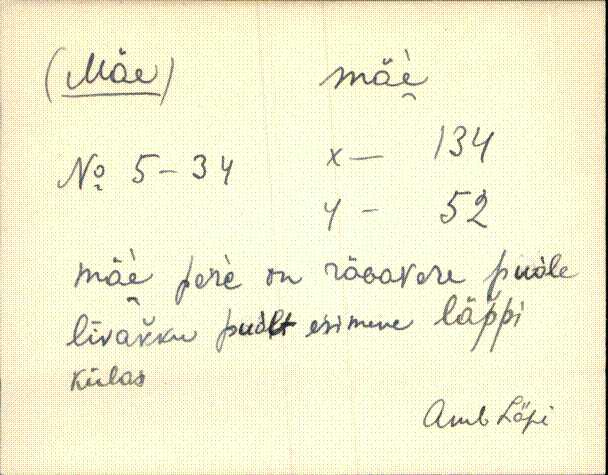 (Mäe) mäè̯
№ 5-34 x — 134
y - 52
mäè̯ perè on räàvere puàle
līvakku puàlt esimene läppi
külas
Amb Läpi